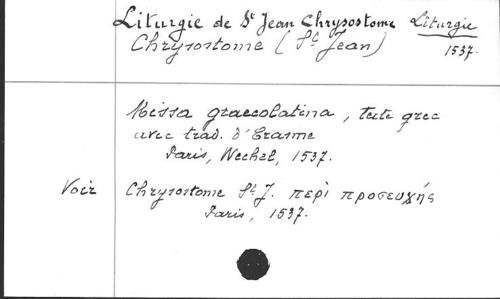 Liturgie de St Jean Chrysostome Liturgie
Chrysostome (St Jean) 1537.
Missa graecolatina, texte grec
avec trad. d'Erasme
Paris, Wechel, 1537.
Voir Chrysostome St J. περὶ προσευχής
Paris, 1537.